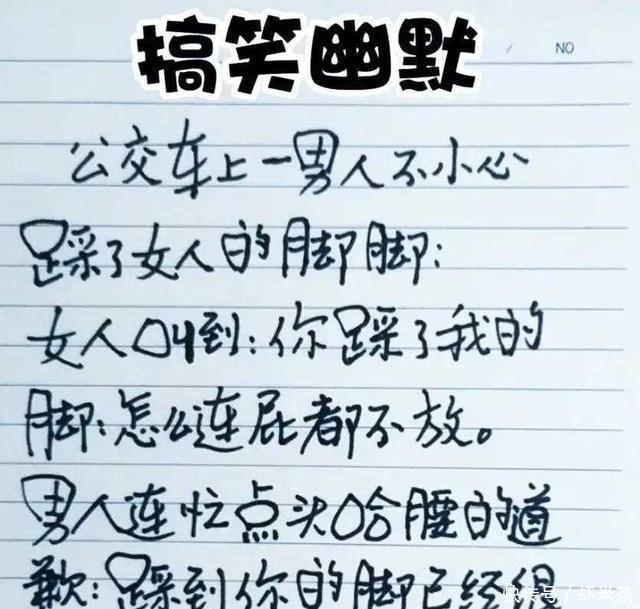 搞笑幽默
NO
公交车上一男人不小心
踩了女人的脚脚:
女人叫到:你踩了我的
脚:怎么连屁都不放。
男人连忙点头哈腰的道
歉:踩到你的脚已经很
快传号/虾米茶